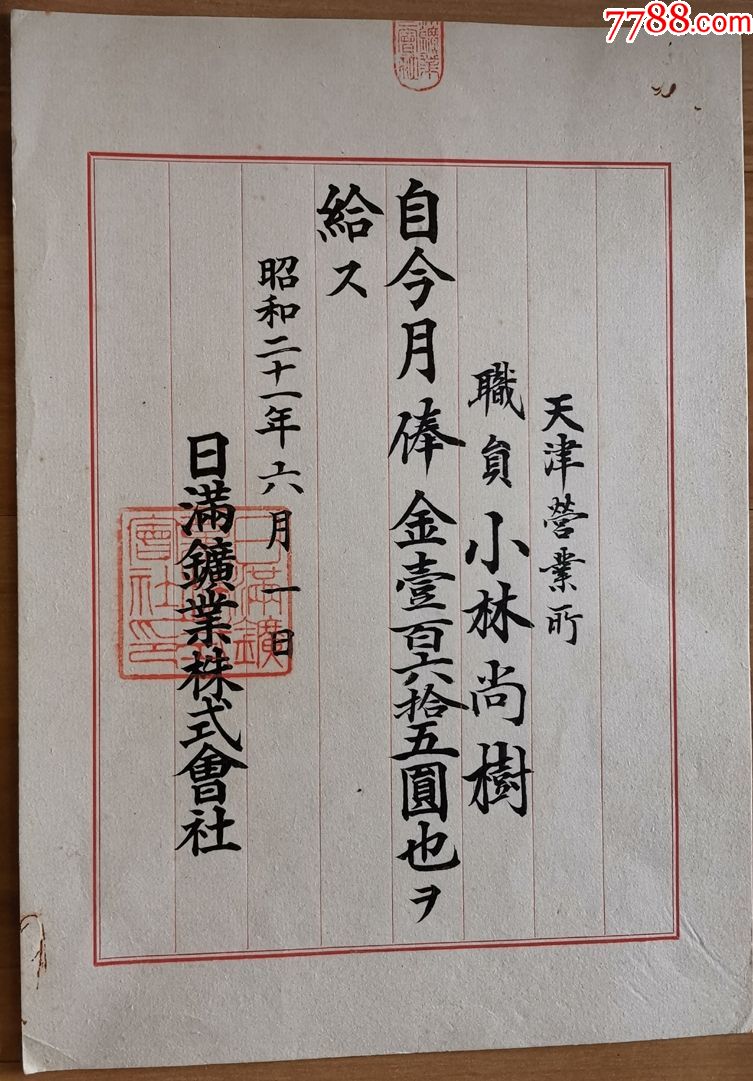 7788.com
天津營業所
職員小林尚樹
自今月俸金壹百六拾五圓也ヲ
給ス
昭和二十一年六月一日
日滿鑛業株式會社